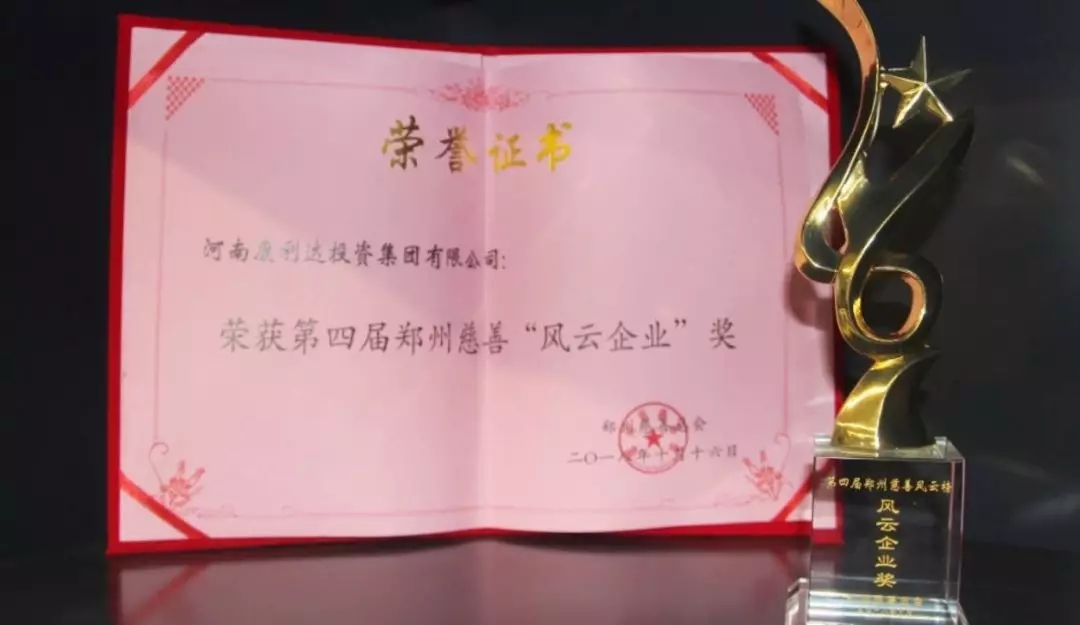 荣誉证书
河南康利达投资集团有限公司:
荣获第四届郑州慈善“风云企业”奖
郑州慈善总会
二〇一八年十月十六日
第四届郑州慈善风云榜
风云企业奖